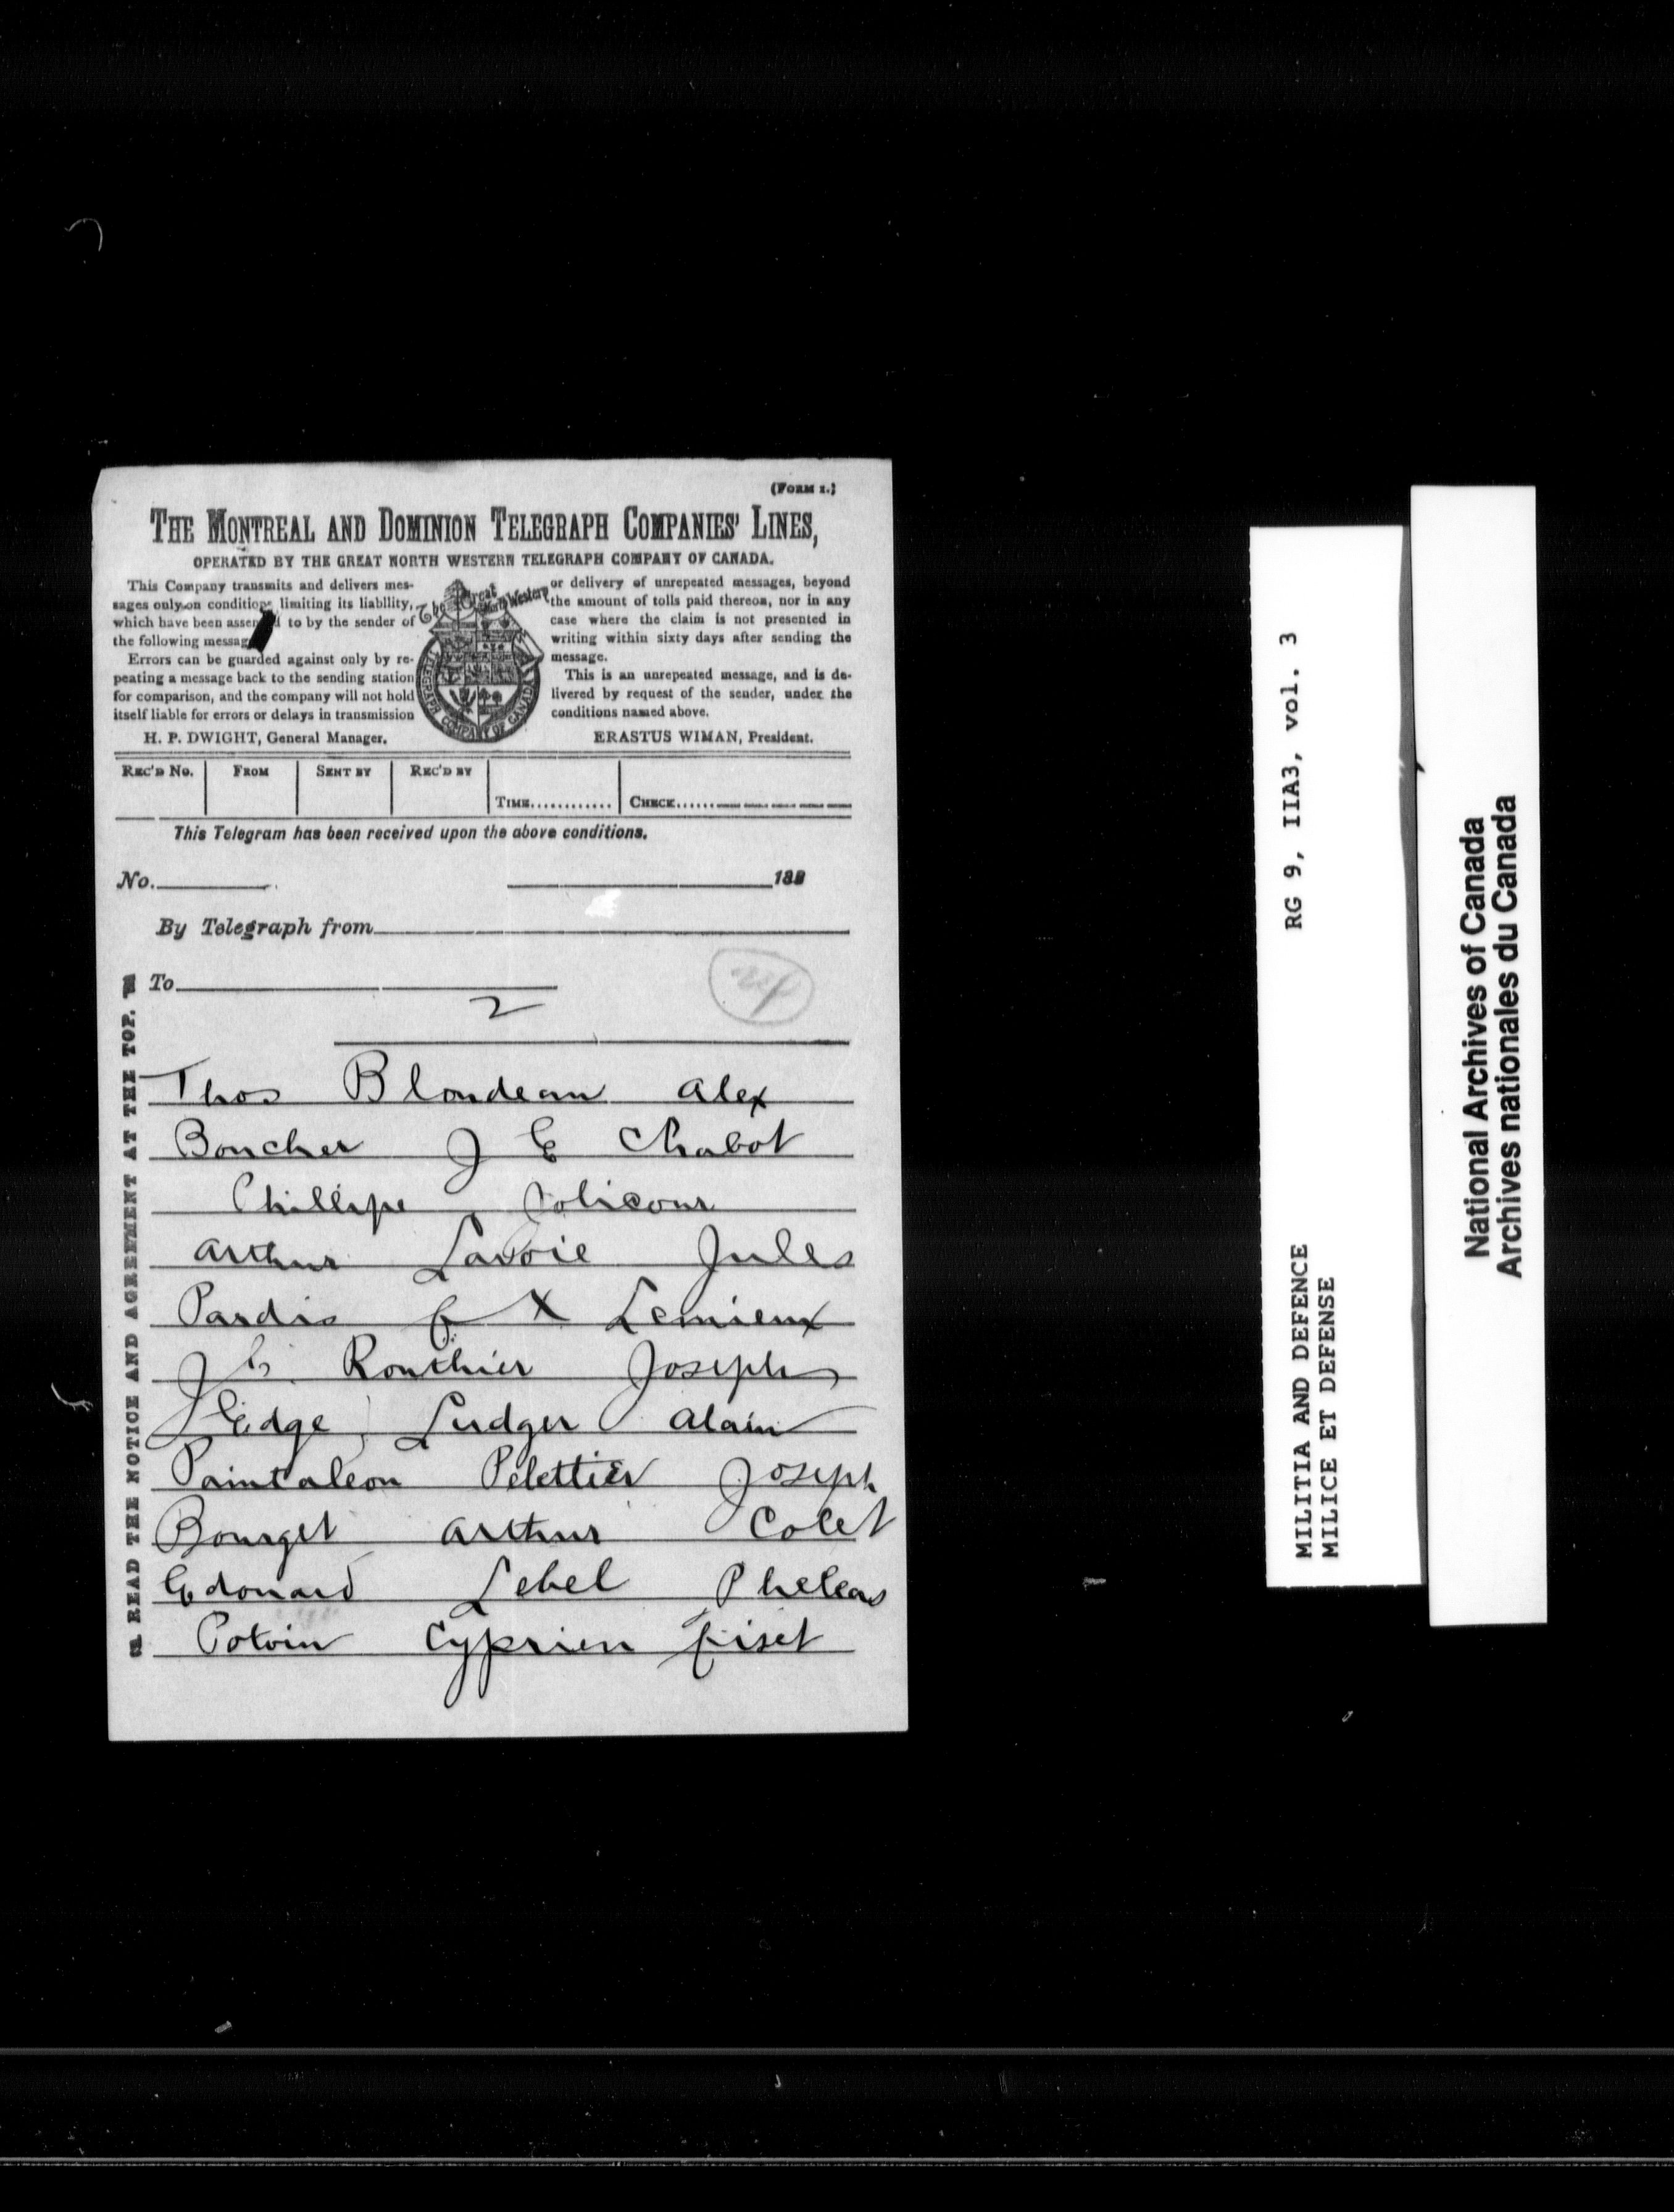 (FORM 1.)
THE MONTREAL AND DOMINION TELEGRAPH COMPANIES' LINES,
OPERATED BY THE GREAT NORTH WESTERN TELEGRAPH COMPANY OF CANADA.
This Company transmits and delivers mes-
sages only on conditions limiting its liability,
which have been assented to by the sender of
the following message
Errors can be guarded against only by re-
peating a message back to the sending station
for comparison, and the company will not hold
itself liable for errors or delays in transmission
H. P. DWIGHT, General Manager.
The Great North Western
TELEGRAPH COMPANY OF CANADA
or delivery of unrepeated messages, beyond
the amount of tolls paid thereon, nor in any
case where the claim is not presented in
writing within sixty days after sending the
message.
This is an unrepeated message, and is de-
livered by request of the sender, under the
conditions named above.
ERASTUS WIMAN, President.
REC'D No. FROM SENT BY REC'D BY TIME............ CHECK......
This Telegram has been received upon the above conditions.
No. 188
By Telegraph from
To
2
Thos Blondeau Alex
Boucher J E Chabot
Phillipe Jolicour
Arthur Lavoie Jules
Pardis F X Lemieux
J E Routhier Joseph
Edge Ludger Alain
Paintaleon Pelettier Joseph
Bourget Arthur Colet
Edouard Lebel Pheleas
Potvin Cyprien Fiset
READ THE NOTICE AND AGREEMENT AT THE TOP.
MILITIA AND DEFENCE RG 9, IIA3, vol. 3
MILICE ET DEFENSE
National Archives of Canada
Archives nationales du Canada